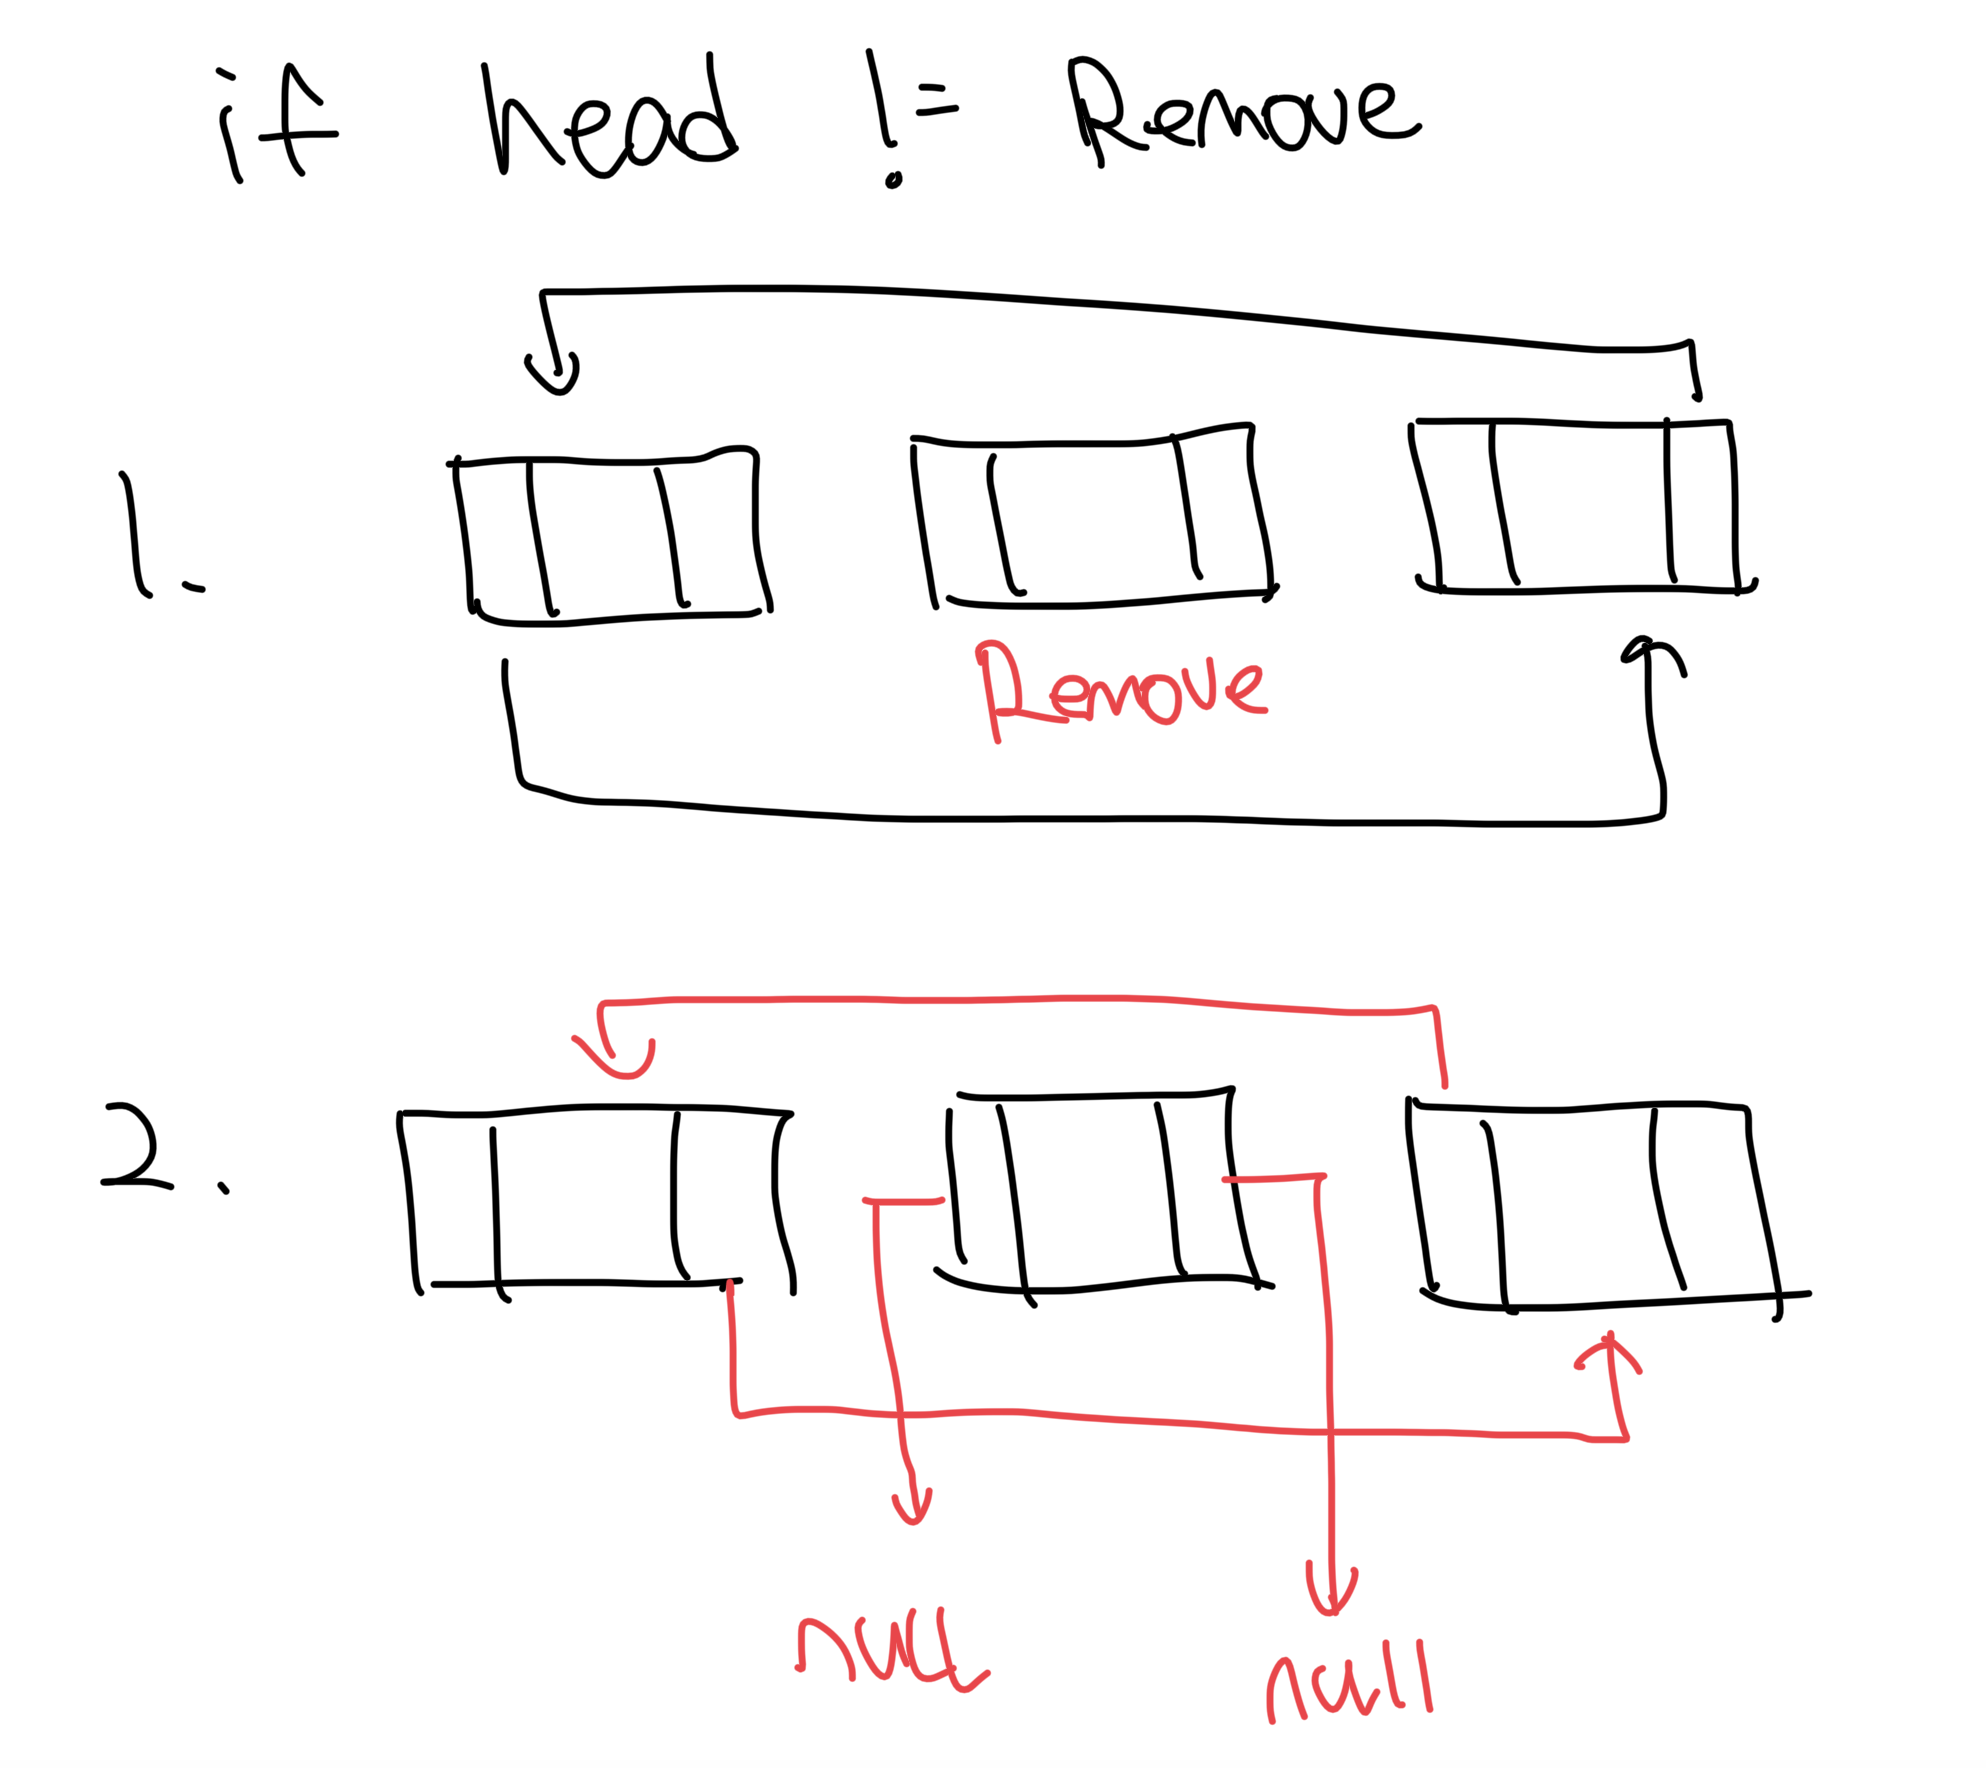 if head != Remove
1.
Remove
2.
null
null